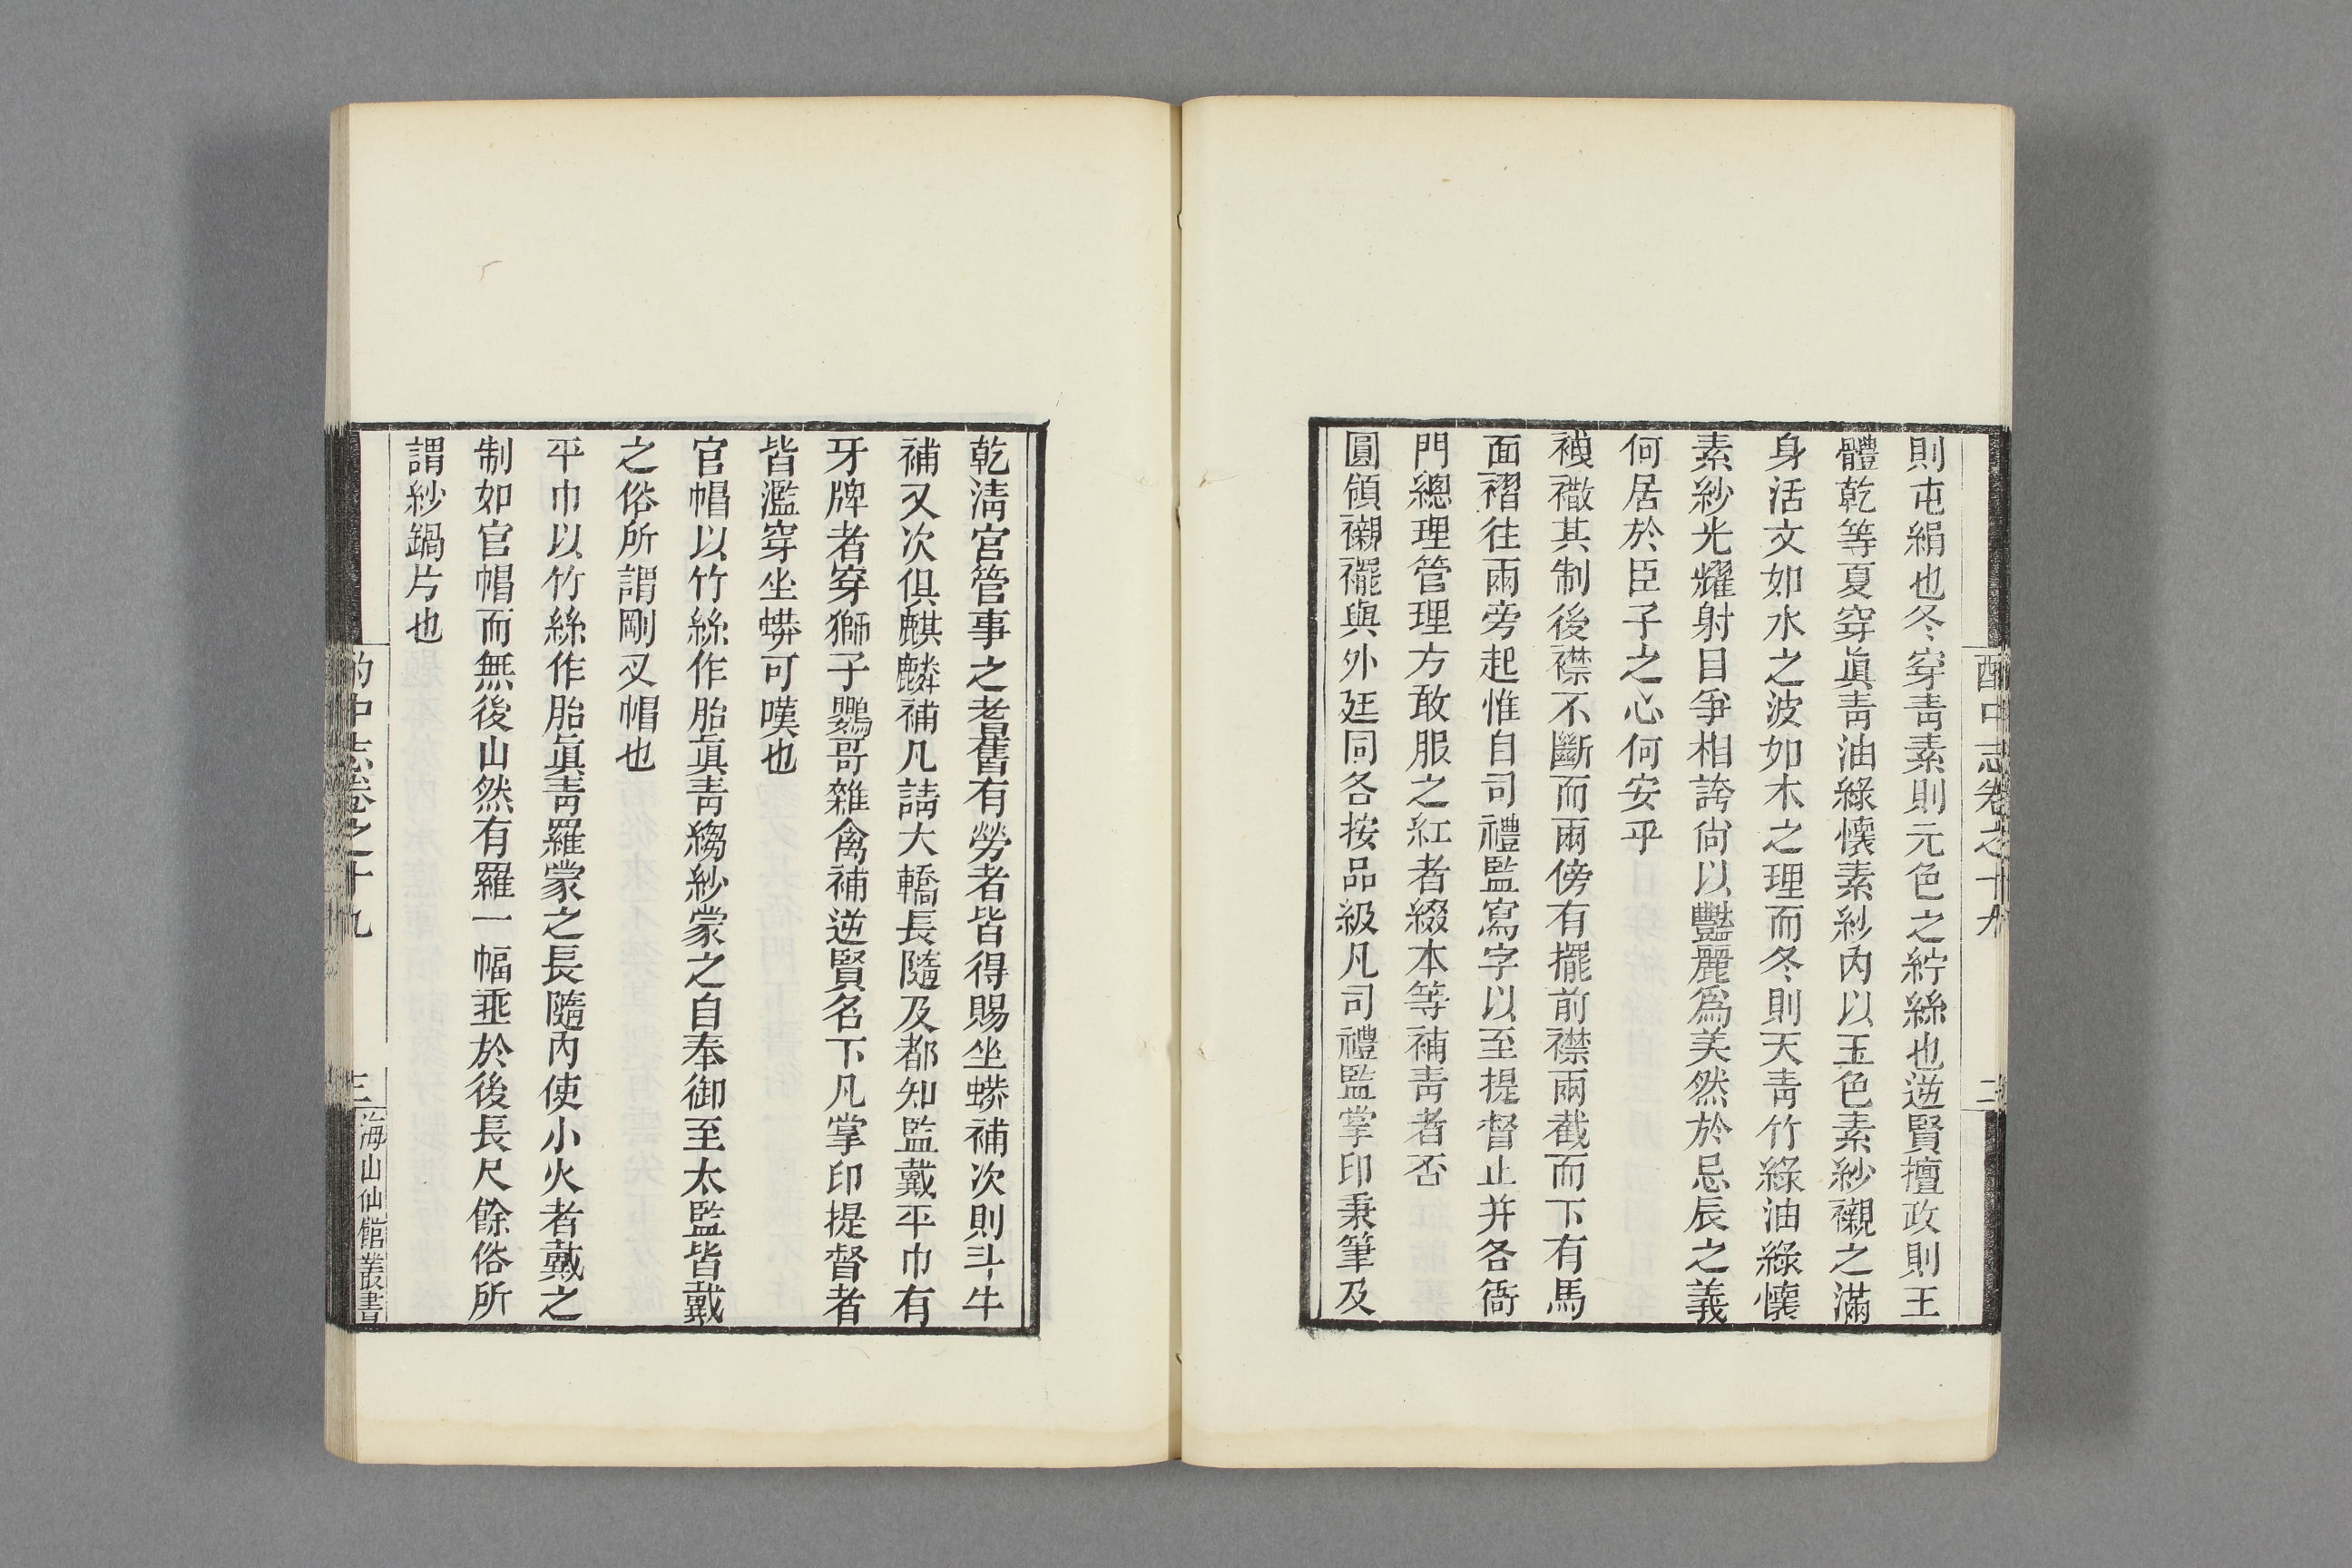 酌中志卷之十九
二
則屯絹也冬穿靑素則元色之紵絲也逆賢擅政則王
體乾等夏穿眞靑油綠懷素紗內以玉色素紗襯之滿
身活文如水之波如木之理而冬則天靑竹綠油綠懷
素紗光耀射目爭相誇尙以豔麗爲美然於忌辰之義
何居於臣子之心何安乎
襪𧞤其制後襟不斷而兩傍有擺前襟兩截而下有馬
面褶往兩旁起惟自司禮監寫字以至提督止并各衙
門總理管理方敢服之紅者綴本等補靑者否
圓領襯襬與外廷同各按品級凡司禮監掌印秉筆及
乾淸宮管事之耆舊有勞者皆得賜坐蟒補次則斗牛
補又次俱麒麟補凡請大轎長隨及都知監戴平巾有
牙牌者穿獅子鸚哥雜禽補逆賢名下凡掌印提督者
皆濫穿坐蟒可嘆也
官帽以竹絲作胎眞靑縐紗蒙之自奉御至太監皆戴
之俗所謂剛叉帽也
平巾以竹絲作胎眞靑羅蒙之長隨內使小火者戴之
制如官帽而無後山然有羅一幅垂於後長尺餘俗所
謂紗鍋片也
酌中志卷之十九
三
海山仙館叢書